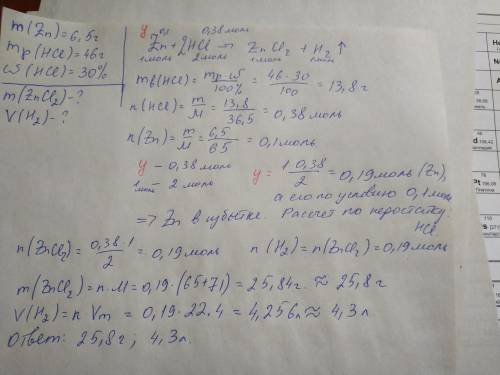 m(Zn)=6,5г
mр(HCl)=46г
ω(HCl)=30%
m(ZnCl₂)-?
V(H₂)-?
y 0,38моль
Zn+2HCl → ZnCl₂ + H₂↑
1моль 2моль 1моль 1моль
mв(HCl) = mр·ω/100% = 46·30/100 = 13,8г
n(HCl) = m/M = 13,8/36,5 = 0,38моль
n(Zn) = m/M = 6,5/65 = 0,1моль
y – 0,38моль
1моль – 2 моль
y = 1·0,38/2 = 0,19моль (Zn),
а его по условию 0,1моль
=> Zn в избытке. Рассчет по недостатку:
HCl.
n(ZnCl₂) = 0,38·1/2 = 0,19моль n(H₂) = n(ZnCl₂) = 0,19моль
m(ZnCl₂) = n·M = 0,19·(65+71) = 25,84г. ≈ 25,8г
V(H₂) = n·Vm = 0,19·22.4 = 4,256л ≈ 4,3л
Ответ: 25,8г; 4,3л.